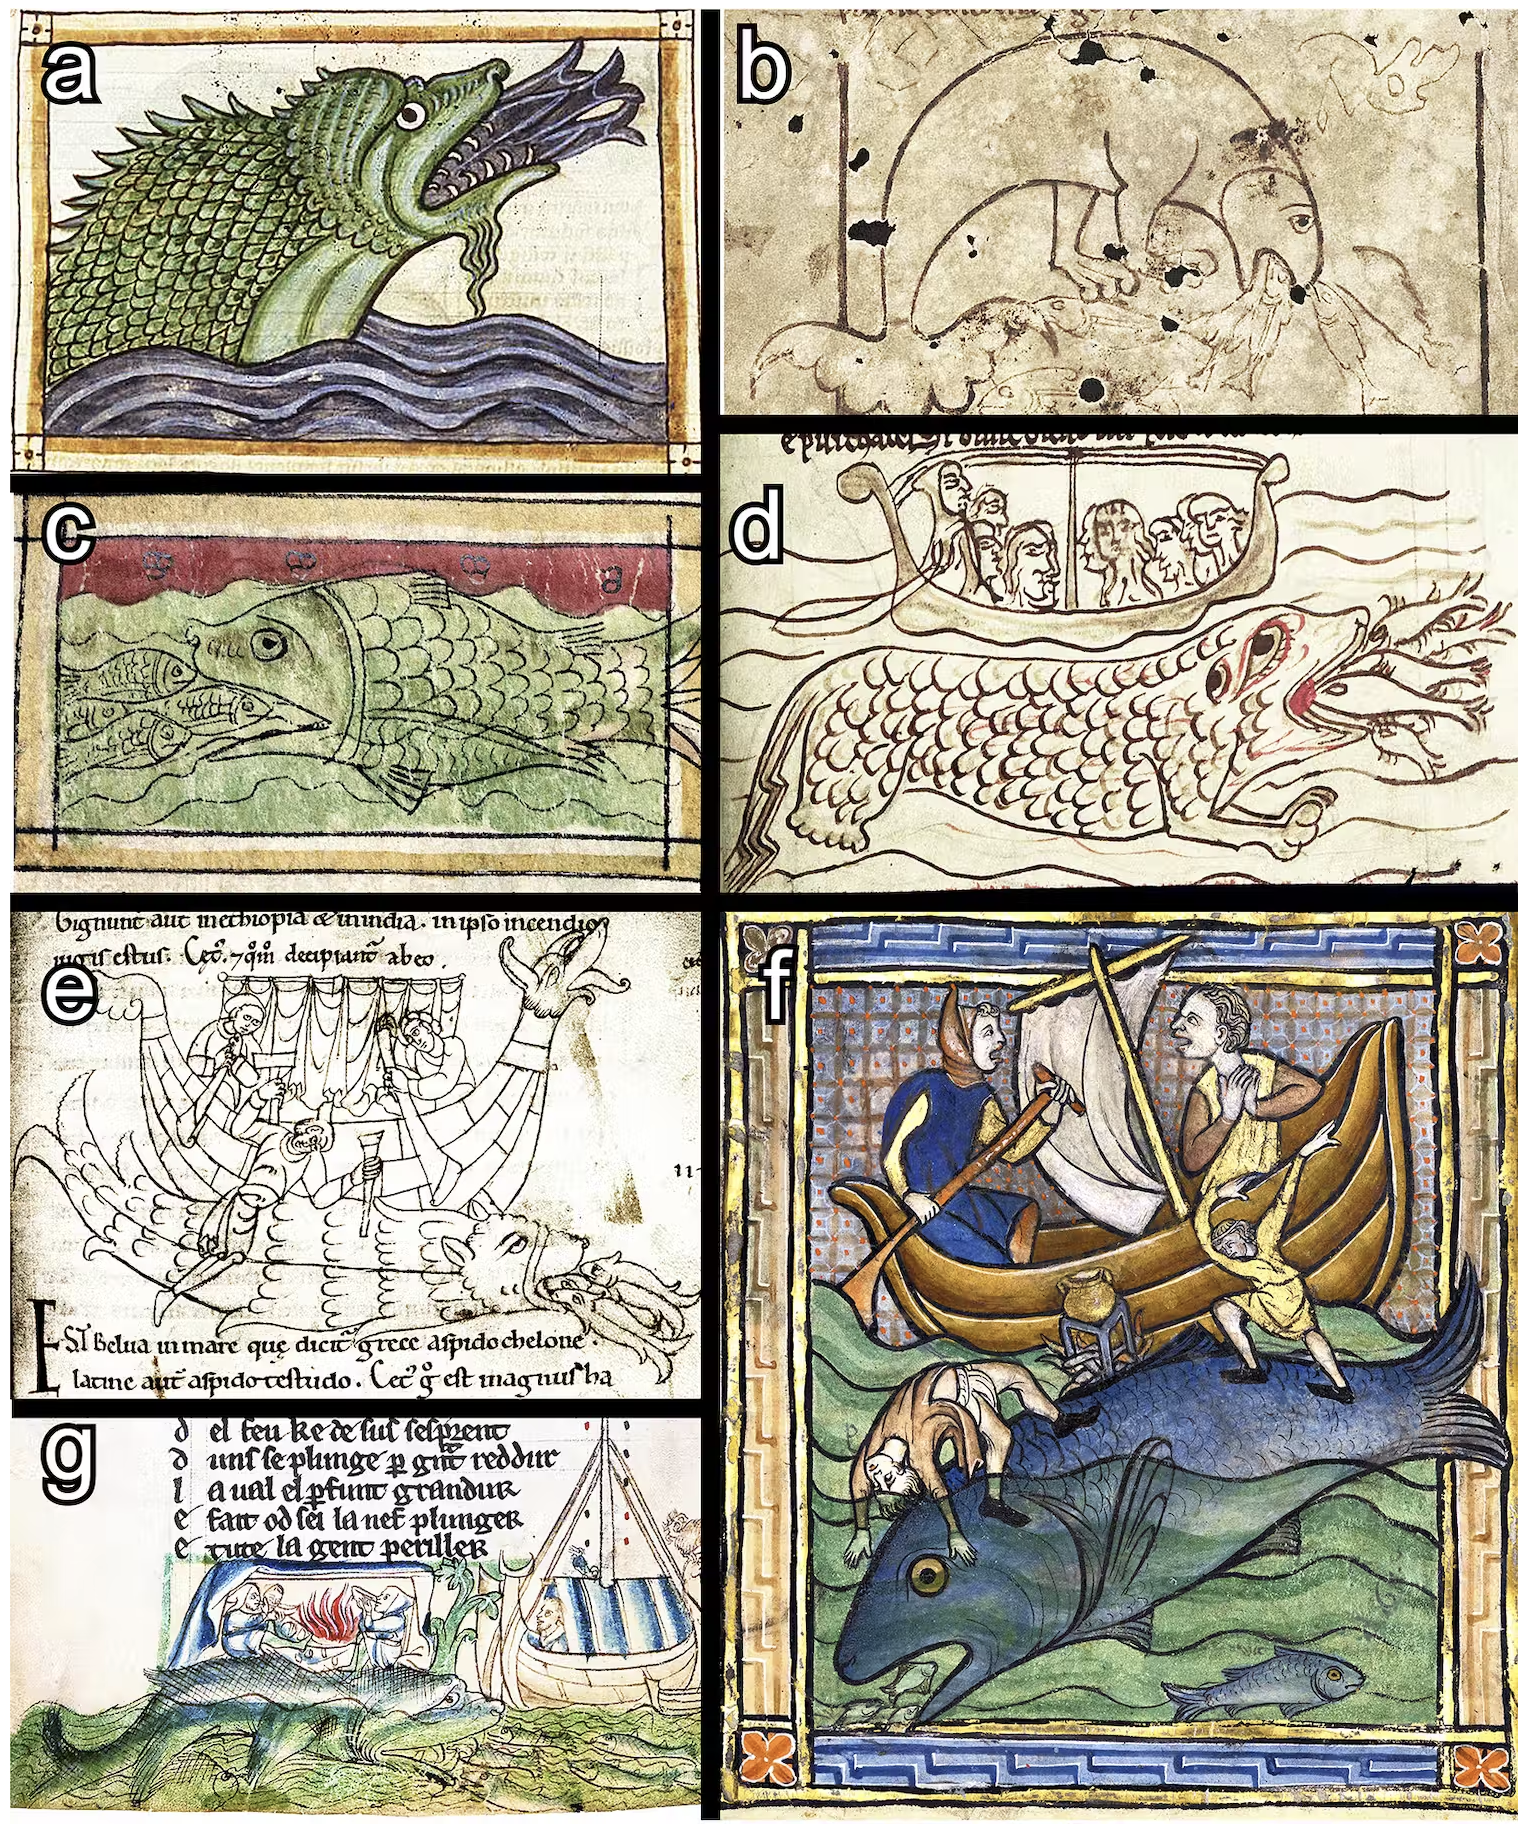 a
b
c
d
epurchacer
e
Gignunt aut inethiopia & inindia. inipso incendio
iugis estus. Cet̃. 7 qm̃ decipiant̃ abeo.
Est Belua inmare que dicit̃ grece aspidochelone.
latine aut̃ aspidotestudo. Cet̃ g̃ est magnus ha
f
g
d el feu ke de sus sesprent
d unf se plunge p gñt reddur
l a ual el pfunt grandur
e fait od sei la nef plunger
e tute la gent periller